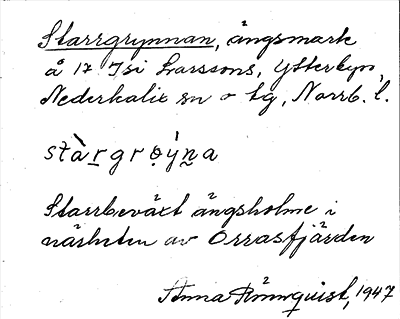 Starrgrynnan, ängsmark
å 17 Isi Larssons, Ytterbyn,
Nederkalix sn o tg, Norrb. l.
stàrgrøýna
Starrbeväxt ängsholme i
närheten av Orrasfjärden
Anna Rönnquist, 1947